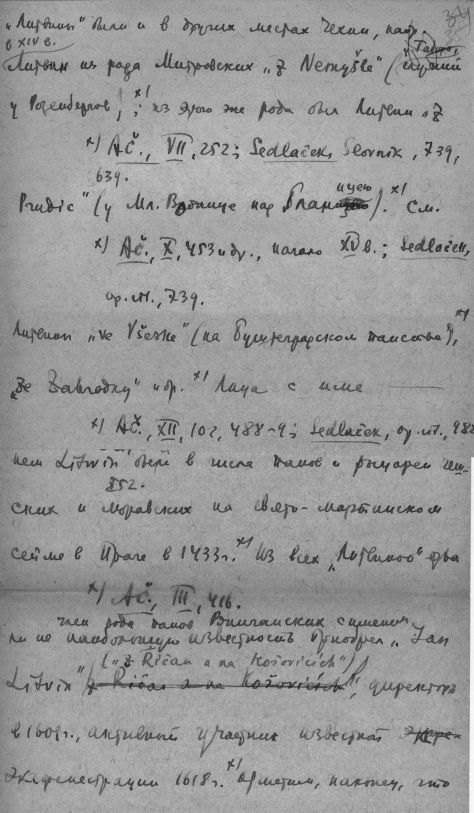 „Литвины" были и в других местах Чехии, напр.
в XIV в.
Литвин из рода Митровских „z Nemyšle" (служил
у Розенбергов)x); из этого же рода был Литвин „z
x) AČ., VII, 252; Sedlaček, Slovnik, 739,
639.
Prudic" (у Мл. Вожице над Бланицею).x) См.
x) AČ., X, 453 и др., начало XV в.; Sedlaček,
op. cit., 739.
Литвин „ve Všezke" (на Буштеградском панстве),x)
„Ze Zahrodky" и пр.x) Лица с име-
x) AČ., XII, 102, 488-9; Sedlaček, op. cit., 982
нем Litvin были в числе панов и рыцарей чеш-
852.
ских и моравских на свято-мартынском
сейме в Праге в 1433 г.x) Из всех „Литвинов" два
x) AČ., III, 416.
член рода панов Ричанских с именем
ли не наибольшую известность приобрел „Jan
(„z Řičan a na Košovicích")
Litvin" z Řičan a na Košovicích", директор
в 1609 г., активный участник известной
Экзфенестрации 1618 г.x) Отметим, наконец, что